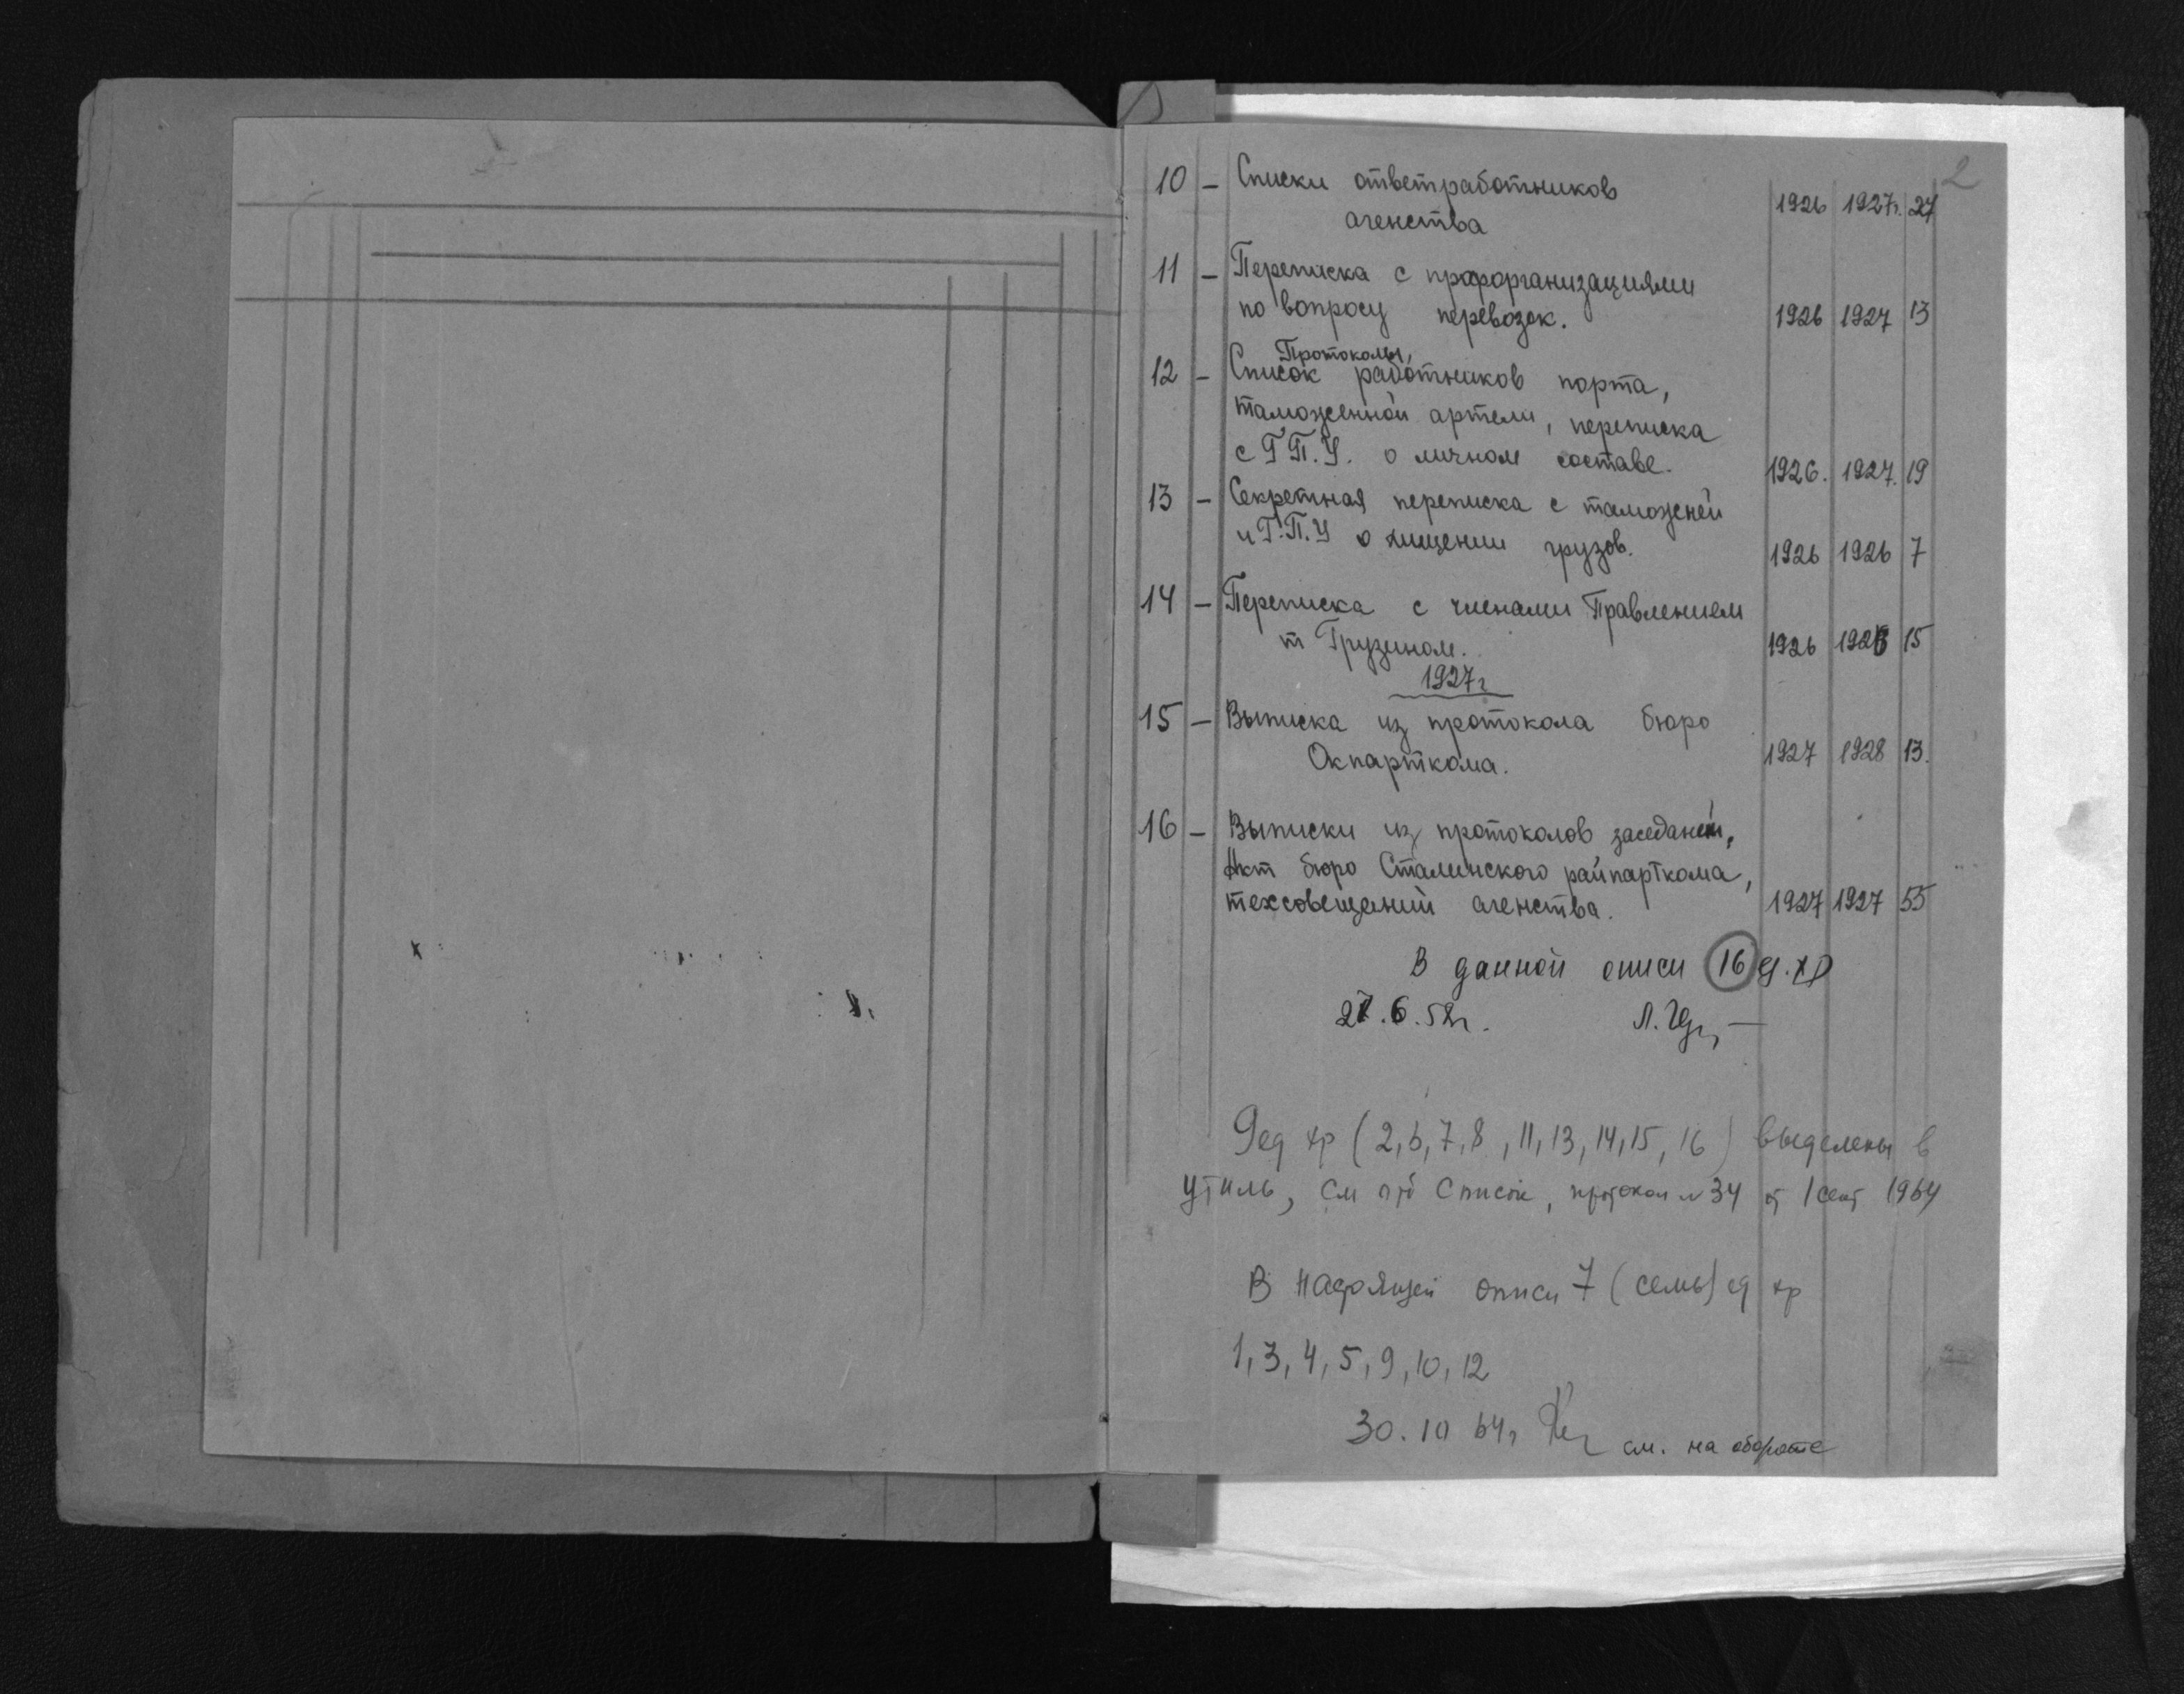 2
10 – Списки ответработников
агенства 1926 1927г. 27
11 – Переписка с профорганизациями
по вопросу перевозок. 1926 1927 13
Протоколы,
12 – Список работников порта,
таможенной артели, переписка
с Г.П.У. о личном составе. 1926. 1927. 19
13 – Секретная переписка с таможней
и Г.П.У о хищении грузов. 1926 1926 7
14 – Переписка с членами Правлением
т Грузином. 1926 1926 15
1927г
15 – Выписка из протокола бюро
Окпарткома. 1927 1928 13.
16 – Выписки из протоколов заседаний,
Акт бюро Сталинского райпарткома,
техсовещаний агенства. 1927 1927 55
В данной описи 16 ед. хр
6.58г.
9 ед хр (2, 6, 7, 8, 11, 13, 14, 15, 16) выделены в
утиль, см список, протокол № 34 от 1 сент 1964
В настоящей описи 7 (семь) ед хр
1, 3, 4, 5, 9, 10, 12
30.10 64г
см. на обороте